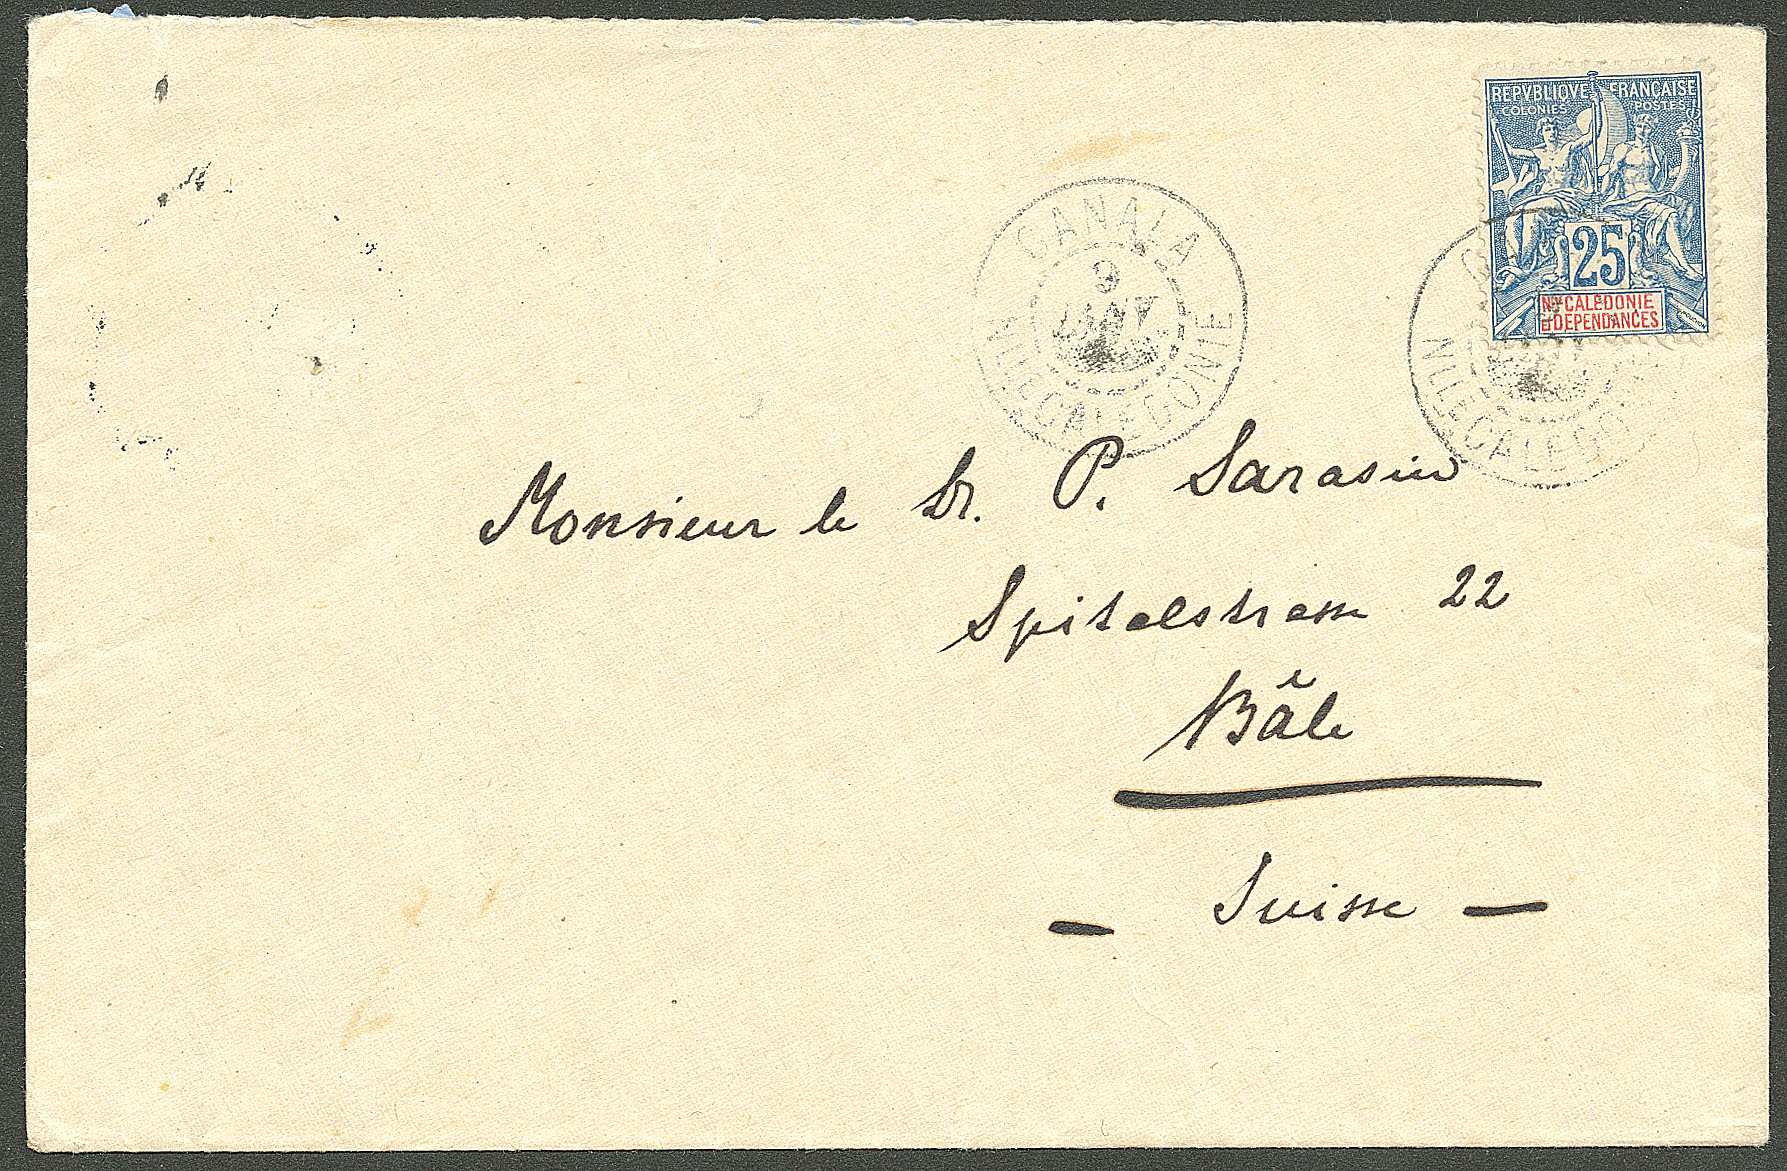 REPVBLIQVE FRANÇAISE
COLONIES POSTES
25
Nlle CALÉDONIE
et DÉPENDANCES
CANALA
9
JANV
NLLE CALEDONIE
NLLE CALEDO
Monsieur le Dr. P. Sarasin
Spitalstrasse 22
Bâle
Suisse